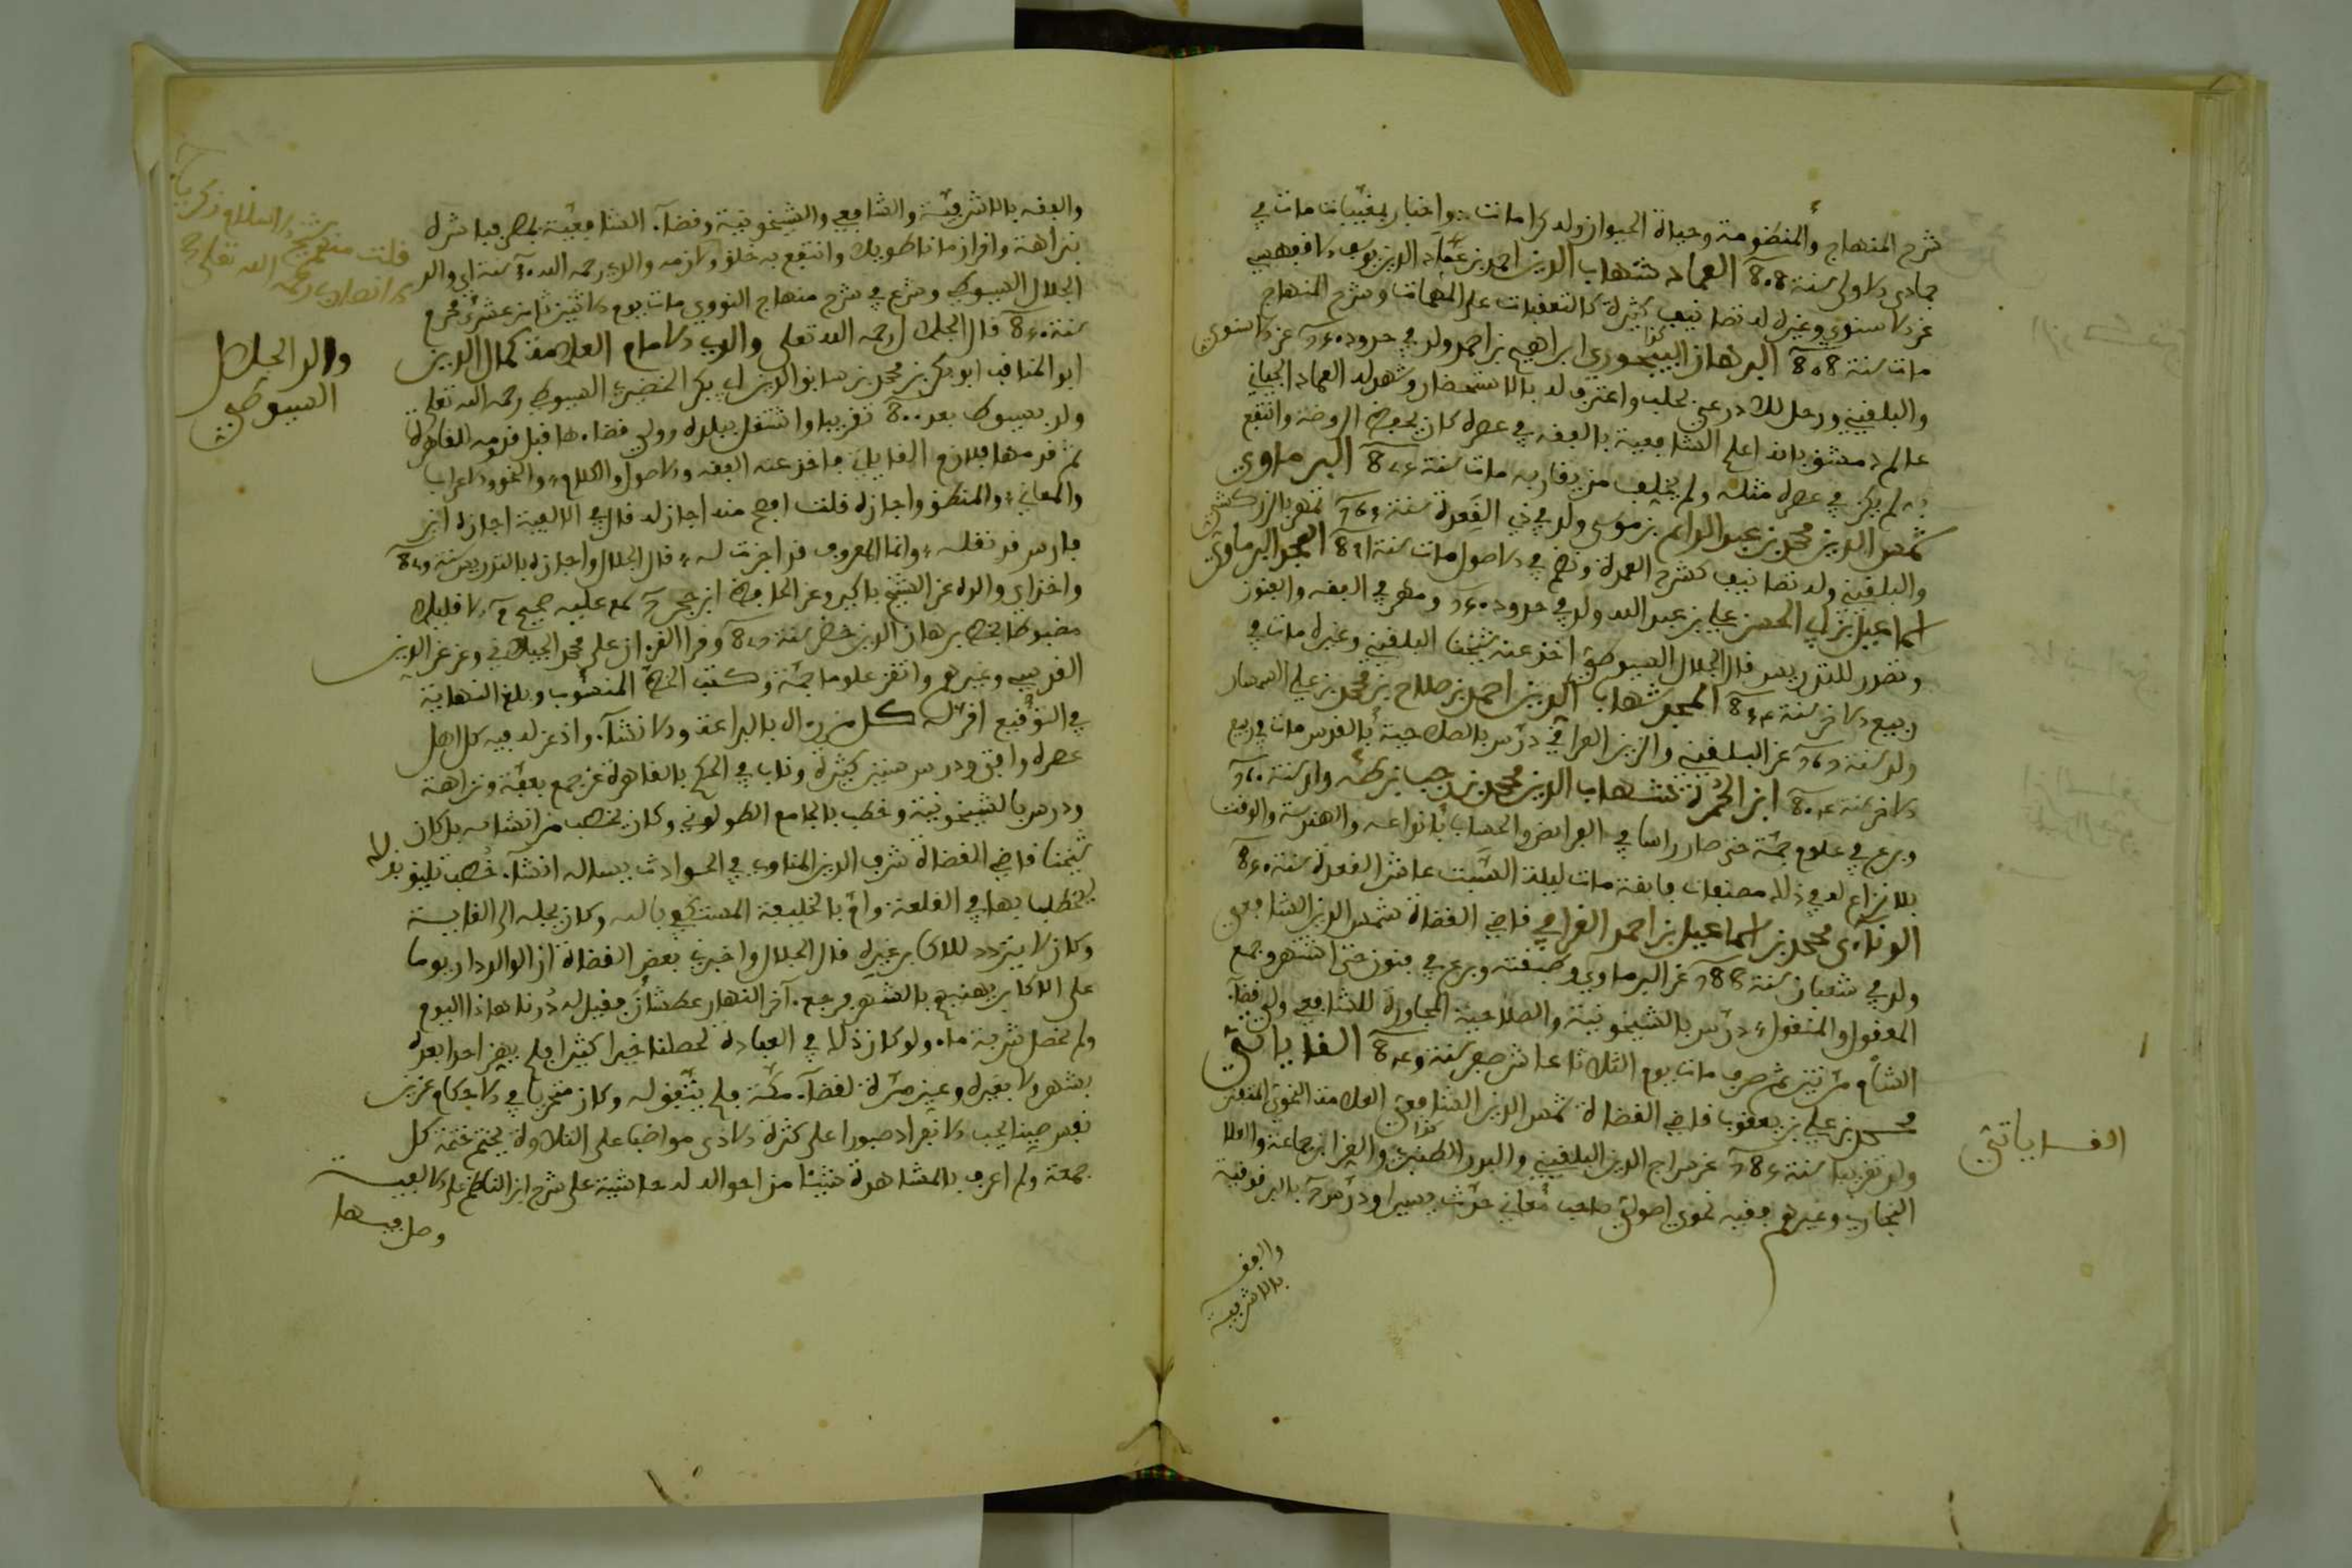 شرح المنهاج والمنظومة وحياة الحيوان وله كرامات واخبار بمغيبات مات في
جمادى الاولى سنة 808 العماد شهاب الدين احمد بن عماد الدين يوسف الاقفهسي
عن الاسنوي وغيره له تصانيف كثيرة كالتعقبات على المهمات وشرح المنهاج
مات سنة 808 البرهان البيجوري ابراهيم بن احمد ولد في حدود عن الاسنوي
والبلقيني ورحل للاذرعي بحلب واعترف له بالاستحضار وشهد له العماد الحسباني
عالم دمشق بانه اعلم الشافعية بالفقه في عصره كان يحفظ الروضة وانتفع
به لم يكن في عصره مثله ولم يخلف من يقاربه مات سنة البرماوي
شمس الدين محمد بن عبد الدائم بن موسى ولد في ذي القعدة سنة تمهر بالزركشي
والبلقيني وله تصانيف كشرح العمدة ونظم في الاصول مات سنة المجد البرماوي
اسماعيل بن ابي الحسن علي بن عبد الله ولد في حدود ومهر في الفقه والفنون
وتصدر للتدريس قال الجلال السيوطي اخذ عنه شيخنا البلقيني وغيره مات في
ربيع الاخر سنة المجد شهاب الدين احمد بن صلاح بن محمد بن علي السمسار
ولد سنة عن البلقيني والزين العراقي درّس بالصلاحية بالقدس مات في ربيع
الاخر سنة ابن الحمرة شهاب الدين محمد بن رجب بن ولد سنة
وبرع في علوم جمة حتى صار راسا في الفرائض والحساب بانواعه والهندسة والوقت
بلا نزاع له في ذلك مصنفات فايقة مات ليلة السبت عاشر القعدة سنة
الونآئي محمد بن اسماعيل بن احمد القرافي قاضي القضاة شمس الدين الشافعي
ولد في شعبان سنة عن البرماوي وطبقته وبرع في فنون حتى اشتهر وجمع
المعقول والمنقول درّس بالشيخونية والصلاحية المجاورة للشافعي وولي قضآء
الشام مرتين ثم صرف مات يوم الثلاثا عاشر صفر سنة القاياتي
محمد بن علي بن يعقوب قاضي القضاة شمس الدين الشافعي العلامة النحوي المتفنن
ولد تقريبا سنة عن سراج الدين البلقيني والبدر الطنبذي والعز ابن جماعة والعلا
البخاري وغيرهم فقيه نحوي اصولي صاحب معاني حدّث يسيرا ودرّس بالبرقوقية
والفقه
بالاشرفية
القاياتي
والفقه بالاشرفيّة والشافعي والشيخونية وقضآء الشافعيّة بمصر فباشره
بنزاهة واقرا زمانا طويلا وانتفع به خلق ولازمه والدي رحمه الله سنة اي والد
الجلال السيوطي وشرع في شرح منهاج النووي مات يوم الاثنين ثامن عشري محرم
سنة قال الجلال رحمه الله تعلى والدي الامام العلامة كمال الدين
ابو المناقب ابو بكر بن محمد بن سابق الدين ابي بكر الخضيري السيوطي رحمه الله تعلى
ولد بسيوط بعد 800 تقريبا واشتغل ببلده وولي قضاءها قبل قدومه القاهرة
ثم قدمها فلازم القاياتي فاخذ عنه الفقه والاصول والكلام والنحو والاعراب
والمعاني والمنطق واجازه قلت افصح منه اجاز له قال في الالفية اجازه ابن
فارس قد نقله وانما المعروف قد اجزت له قال الجلال واجازه بالتدريس سنة
واخذ اي والده عن الشيخ باكير وعن الحافظ ابن حجر سمع عليه صحيح الا قليلا
مضبوطا بخط برهان الدين خضر سنة وقرا القرءان على محمد الجيلاني وعن عز الدين
القدسي وغيرهم واتقن علوما جمّة وكتب الخط المنسوب وبلغ النهاية
في التوقيع اقر له كل من راه بالبراعة والانشآء واذعن له فيه كل اهل
عصره وافتى ودرس سنين كثيرة وناب في الحكم بالقاهرة عن جمع بعفّة ونزاهة
ودرس بالشيخونية وخطب بالجامع الطولوني وكان يخطب من انشائه بل كان
شيخنا قاضي القضاة شرف الدين المناوي في الحوادث يساله انشآء خُطب تليق بذلك
ليخطب بها في القلعة وامّ بالخليفة المستكفي بالله وكان يجله الى الغاية
وكان لا يتردد للاكابر غيره قال الجلال واخبرني بعض القضاة ان الوالد دار يوما
على الاكابر يهنيهم بالشهر فرجع آخر النهار عطشان فقيل له دُرنا هاذا اليوم
ولم تحصل شربة ماء ولو كان ذلك في العبادة لحصلنا خيرا كثيرا فلم يهن احدا بعده
بشهر ولا بغيره وعين مرّة لقضآء مكّة فلم يتفق له وكان متحريا في الاحكام عزيز
نفس صينا يحب الانفراد صبورا على كثرة الاذى مواضبا على التلاوة يختم ختمة كل
جمعة ولم اعرف بالمشاهدة شيئا من احواله له حاشية على شرح ابن الناظم على الالفية
وصل فيها
قلت منهج الاسلام زكريا
الانصاري رحمه الله تعلى
والد الجلال
السيوطي